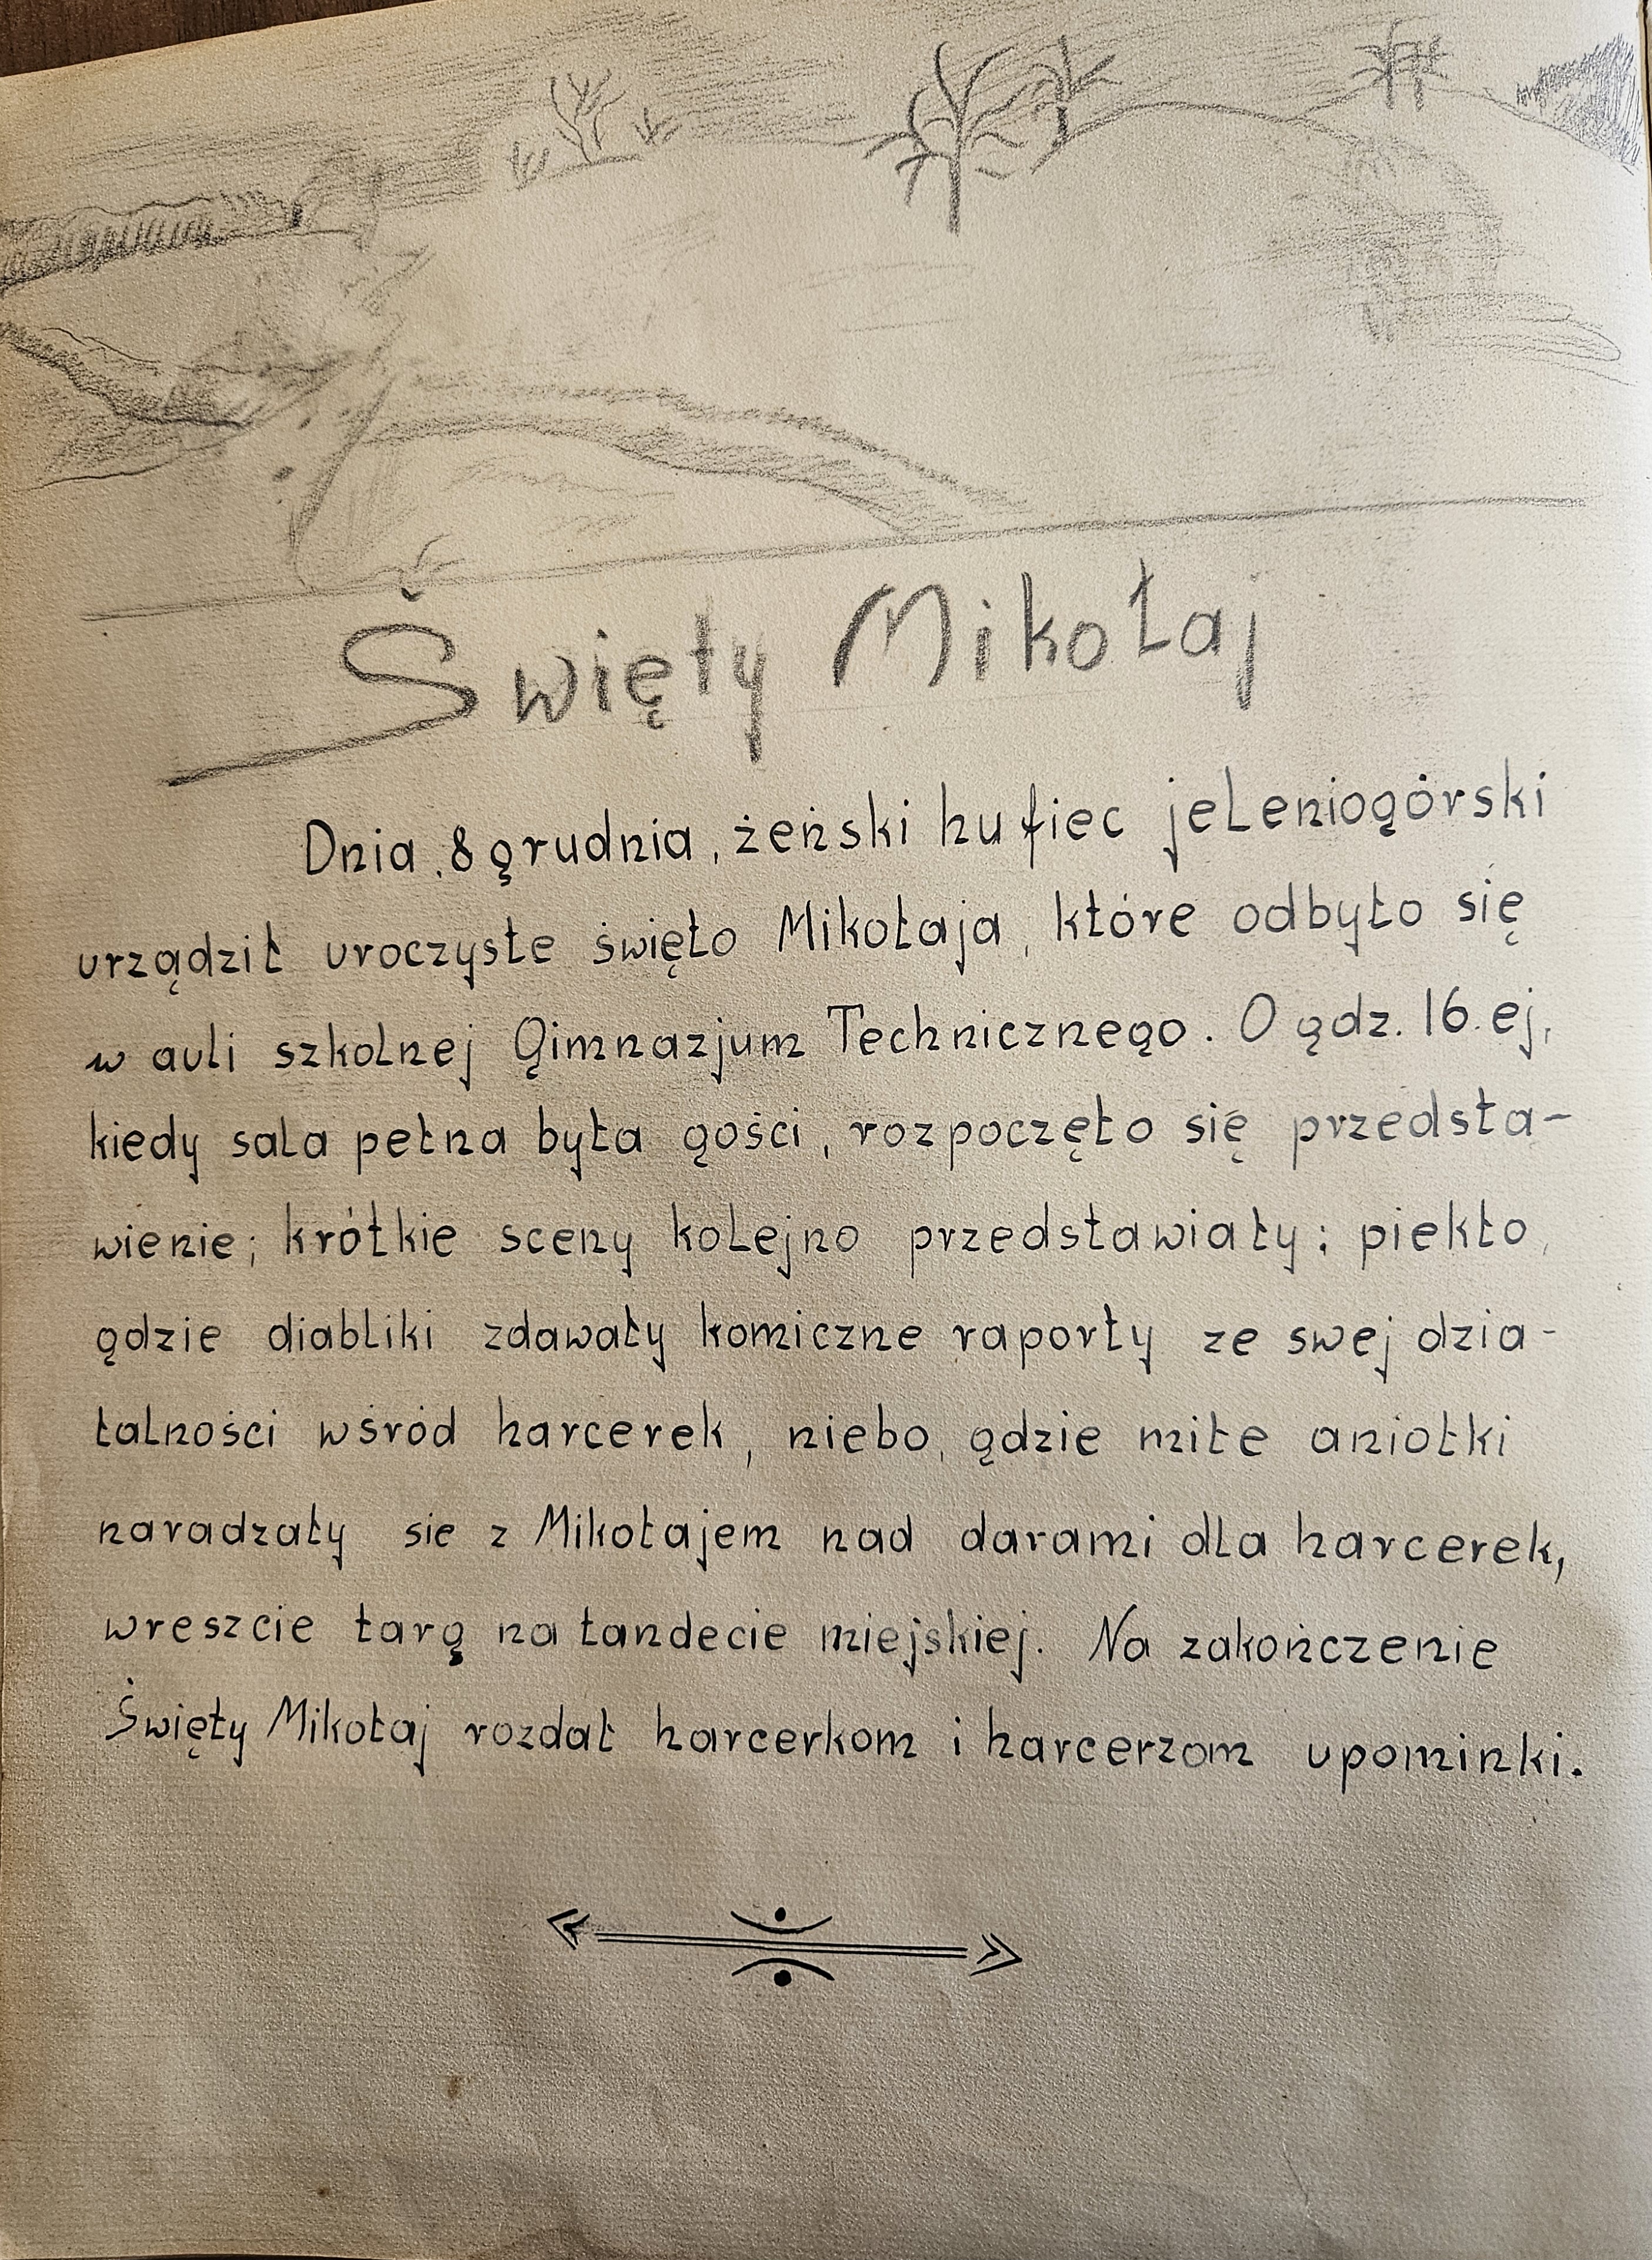 Święty Mikołaj
Dnia, 8 grudnia, żeński hufiec jeleniogórski
urządził uroczyste święto Mikołaja, które odbyło się
w auli szkolnej Gimnazjum Technicznego. O gdz. 16.ej,
kiedy sala pełna była gości, rozpoczęło się przedsta-
wienie; krótkie sceny kolejno przedstawiały: piekło,
gdzie diabliki zdawały komiczne raporty ze swej dzia-
łalności wśród harcerek, niebo, gdzie miłe aniołki
naradzały sie z Mikołajem nad darami dla harcerek,
wreszcie targ na tandecie miejskiej. Na zakończenie
Święty Mikołaj rozdał harcerkom i harcerzom upominki.